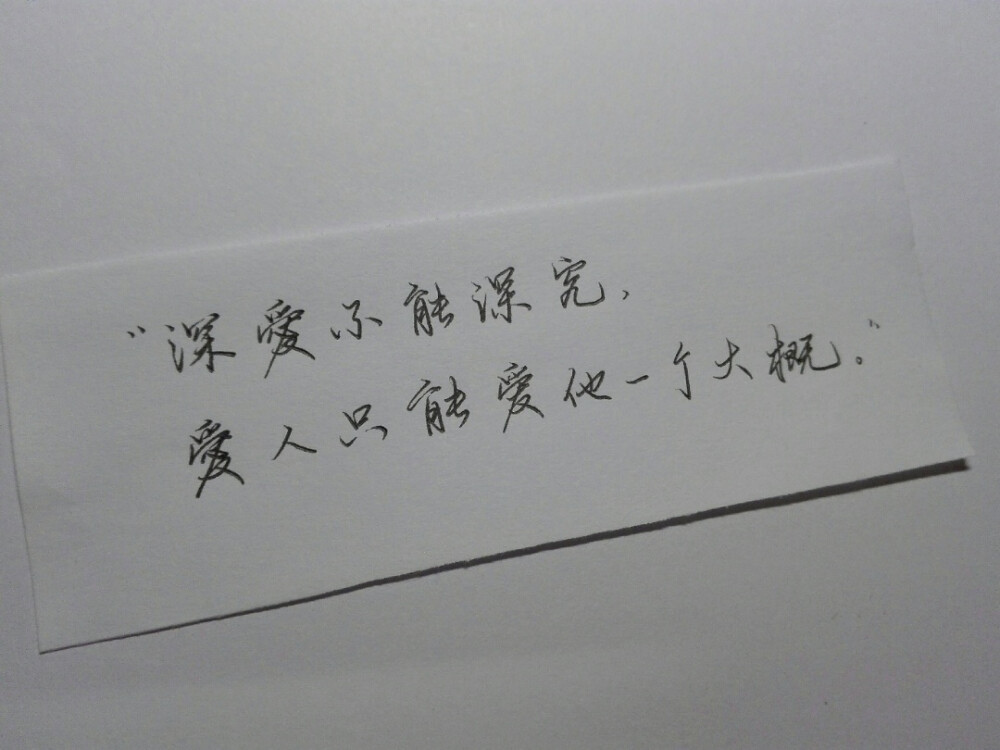 “深愛不能深究,
愛人只能愛他一个大概。”